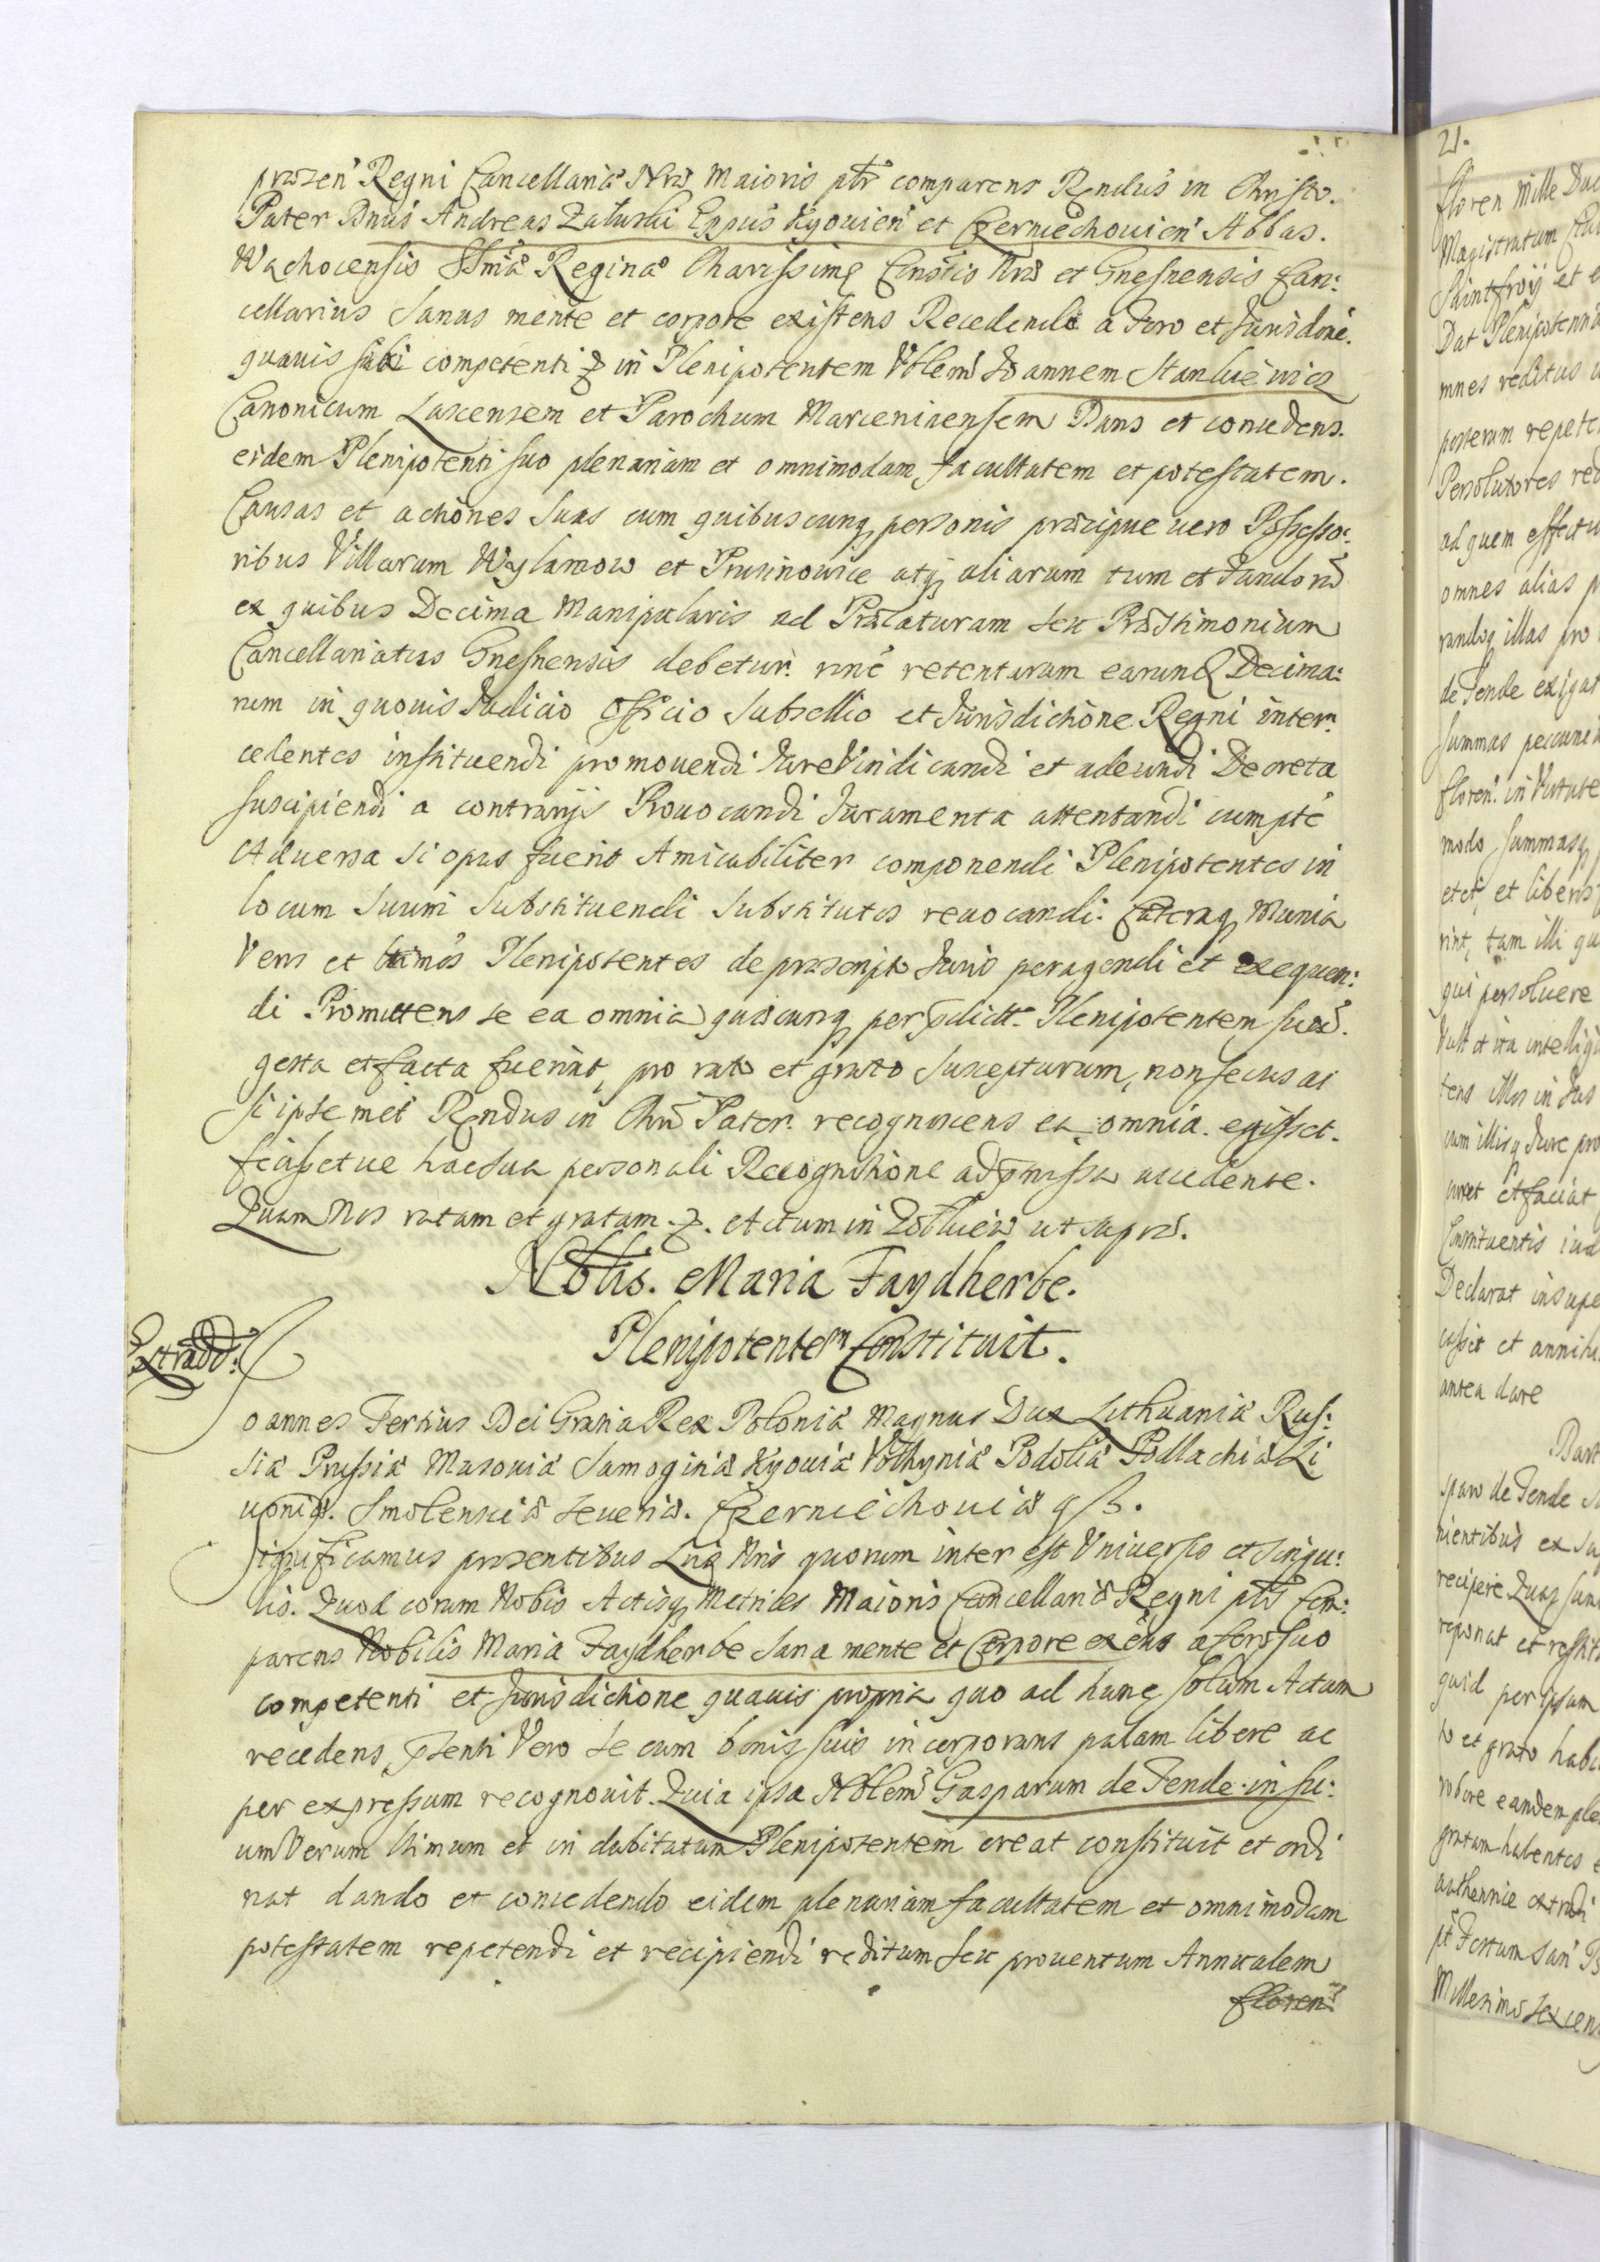 præsen Regni Cancellariæ Nræ Maioris ptr comparens Rendus in Christo.
Pater Dnus Andreas Załuski Eppus Kyouien et Czerniechouien Abbas.
Wachocensis SSmæ Reginæ Charissimę Consortis Nræ et Gnesnensis Can:
cellarius Sanus mente et corpore existens Recedendo a Foro et Jurisdoné.
quauis sibi competenti in Plenipotentem Vblem Joannem Stankiewicz
Canonicum Lascensem et Parochum Marcenicensem Dans et concedens.
eidem Plenipotenti suo plenariam et omnimodam facultatem et potestatem.
Causas et actiones suas cum quibuscunq personis præcipue uero Possesso:
ribus Villarum Wylamow et Prusinowice atq aliarum tum et Fundorū
ex quibus Decima Manipularis ad Prælaturam seu Præstimonium
Cancellariatus Gnesnensis debetur. rnê retenturam earundē Decima:
rum in quouis Judicio Officio Subsellio et Jurisdictione Regni inter:
cedentes instituendi promouendi Jure Vindicandi et adeundi Decreta
suscipiendi a contrarijs Prouocandi Juramenta attentandi cumpte
Aduersa si opus fuerit Amicabiliter componendi Plenipotentes in
locum suum substituendi substitutos reuocandi. Cæteraq Munia
Veri et Plenipotentes de præscripto Juris peragendi et exequen:
di Promittens se ea omnia quæcunq per pdictū Plenipotentem suū.
gesta et facta fuerint, pro rato et grato suscepturum, non secus ac
si ipse met Rendus in Chro Pater. recognoscens ea omnia. egisset.
fecissetue hac sua personali Recognitione ad pmissa accedente.
Quam Nos ratam et gratam. Actum in Zolkiew ut supra.
Nblis. Maria Faydherbe.
Plenipotentem Constituit.
Extradd:
Joannes Tertius Dei Gratia Rex Poloniæ Magnus Dux Lithuaniæ Rus:
siæ Prussiæ Masouiæ Samogitiæ Kyouiæ Volhyniæ Podoliæ Podlachiæ Li
uoniæ. Smolensciæ Seueriæ. Czerniechouiæ q ß.
Significamus præsentibus Lris Nris quorum inter est Vniuersis et singu:
lis. Quod coram Nobis Actisq Metrices Maioris Cancellariæ Regni ptr Com:
parens Nobilis Maria Faydherbe sana mente et Corpore exēns a foro suo
competenti et Jurisdictione quauis propria quo ad hunc solum Actum
recedens, psenti Vero se cum bonis suis incorporans palam libere ac
per expressum recognouit. Quia ipsa Nblem Gasparum de Tende in su:
um Verum ltimum et in dubitatum Plenipotentem creat constituit et ordi
nat dando et concedendo eidem plenariam facultatem et omnimodam
potestatem repetendi et recipiendi reditum seu prouentum Annualem
floren
21.
floren Mille Duc
Magistratum
Saintfroy et e
Dat Plenipotenti
mnes reditus u
posterum repet
Persolutores red
ad quem effectu
omnes alias p
randosq illas pro
de Tende exigat
summas pecunia
floren. in Virtute
modo summasq
et liberis
rint, tam illi qu
qui persoluere
Vult et ita intelligi
tens illos in Jus
cum illisq Jure pro
curet et faciat
Constituentis iud
Declarat insupe
cassit et annihi
antea dare
Bart
sparo de Tende
nientibus ex
recipere Quas sum
reponat et restit
quid per ipsum
to et grato habi
robore eandem ple
gratam habentes e
authentice extradi
pt Festum San
Millesimo sexcen